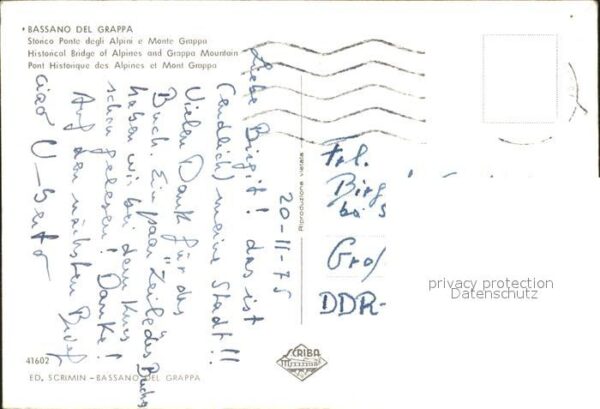 BASSANO DEL GRAPPA
Storico Ponte degli Alpini e Monte Grappa
Historical Bridge of Alpines and Grappa Mountain
Pont Historique des Alpines et Mont Grappa
20-11-75
Liebe Birgit! das ist
(endlich) meine Stadt!!
Vielen Dank für das
Buch. Ein paar Zeile des Buchs
haben wir bei dem Kurs
schon gelesen! Danke!
Auf den nächsten Brief
ciao
Riproduzione vietata
Frl.
Birg
bei
Groß
DDR-
privacy protection
Datenschutz
41602
ED. SCRIMIN - BASSANO DEL GRAPPA
SCRIBA